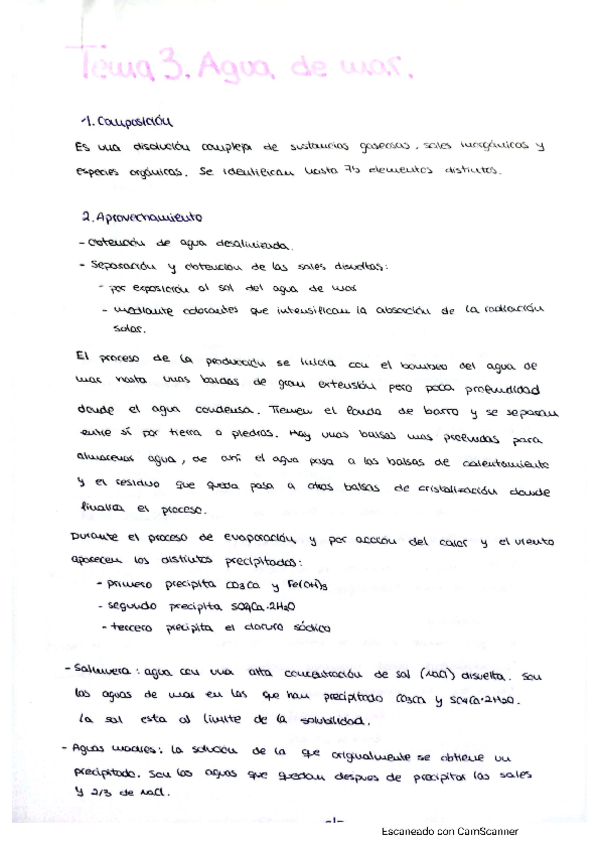 Tema 3. Agua de mar.
1. Composición
Es una disolución compleja de sustancias gaseosas, sales inorgánicas y
especies orgánicas. Se identifican hasta 75 elementos distintos.
2. Aprovechamiento
- Obtención de agua desalinizada.
- Separación y obtención de las sales disueltas:
- por exposición al sol del agua de mar
- mediante colorantes que intensifican la absorción de la radiación
solar.
El proceso de la producción se inicia con el bombeo del agua de
mar hasta unas balsas de gran extensión pero poca profundidad
donde el agua condensa. Tienen el fondo de barro y se separan
entre sí por tierra o piedras. Hay unas balsas mas profundas para
almacenar agua, de ahí el agua pasa a las balsas de calentamiento
y el residuo que queda pasa a otras balsas de cristalización donde
finaliza el proceso.
Durante el proceso de evaporación y por acción del calor y el viento
aparecen los distintos precipitados:
- primero precipita CO3Ca y Fe(OH)3
- segundo precipita SO4Ca·2H2O
- tercero precipita el cloruro sódico
- Salmuera: agua con una alta concentración de sal (NaCl) disuelta. Son
las aguas de mar en las que han precipitado CO3Ca y SO4Ca·2H2O.
La sal esta al límite de la solubilidad.
- Aguas madres: la solución de la que originalmente se obtiene un
precipitado. Son las aguas que quedan despues de precipitar las sales
y 2/3 de NaCl.
-1-
Escaneado con CamScanner